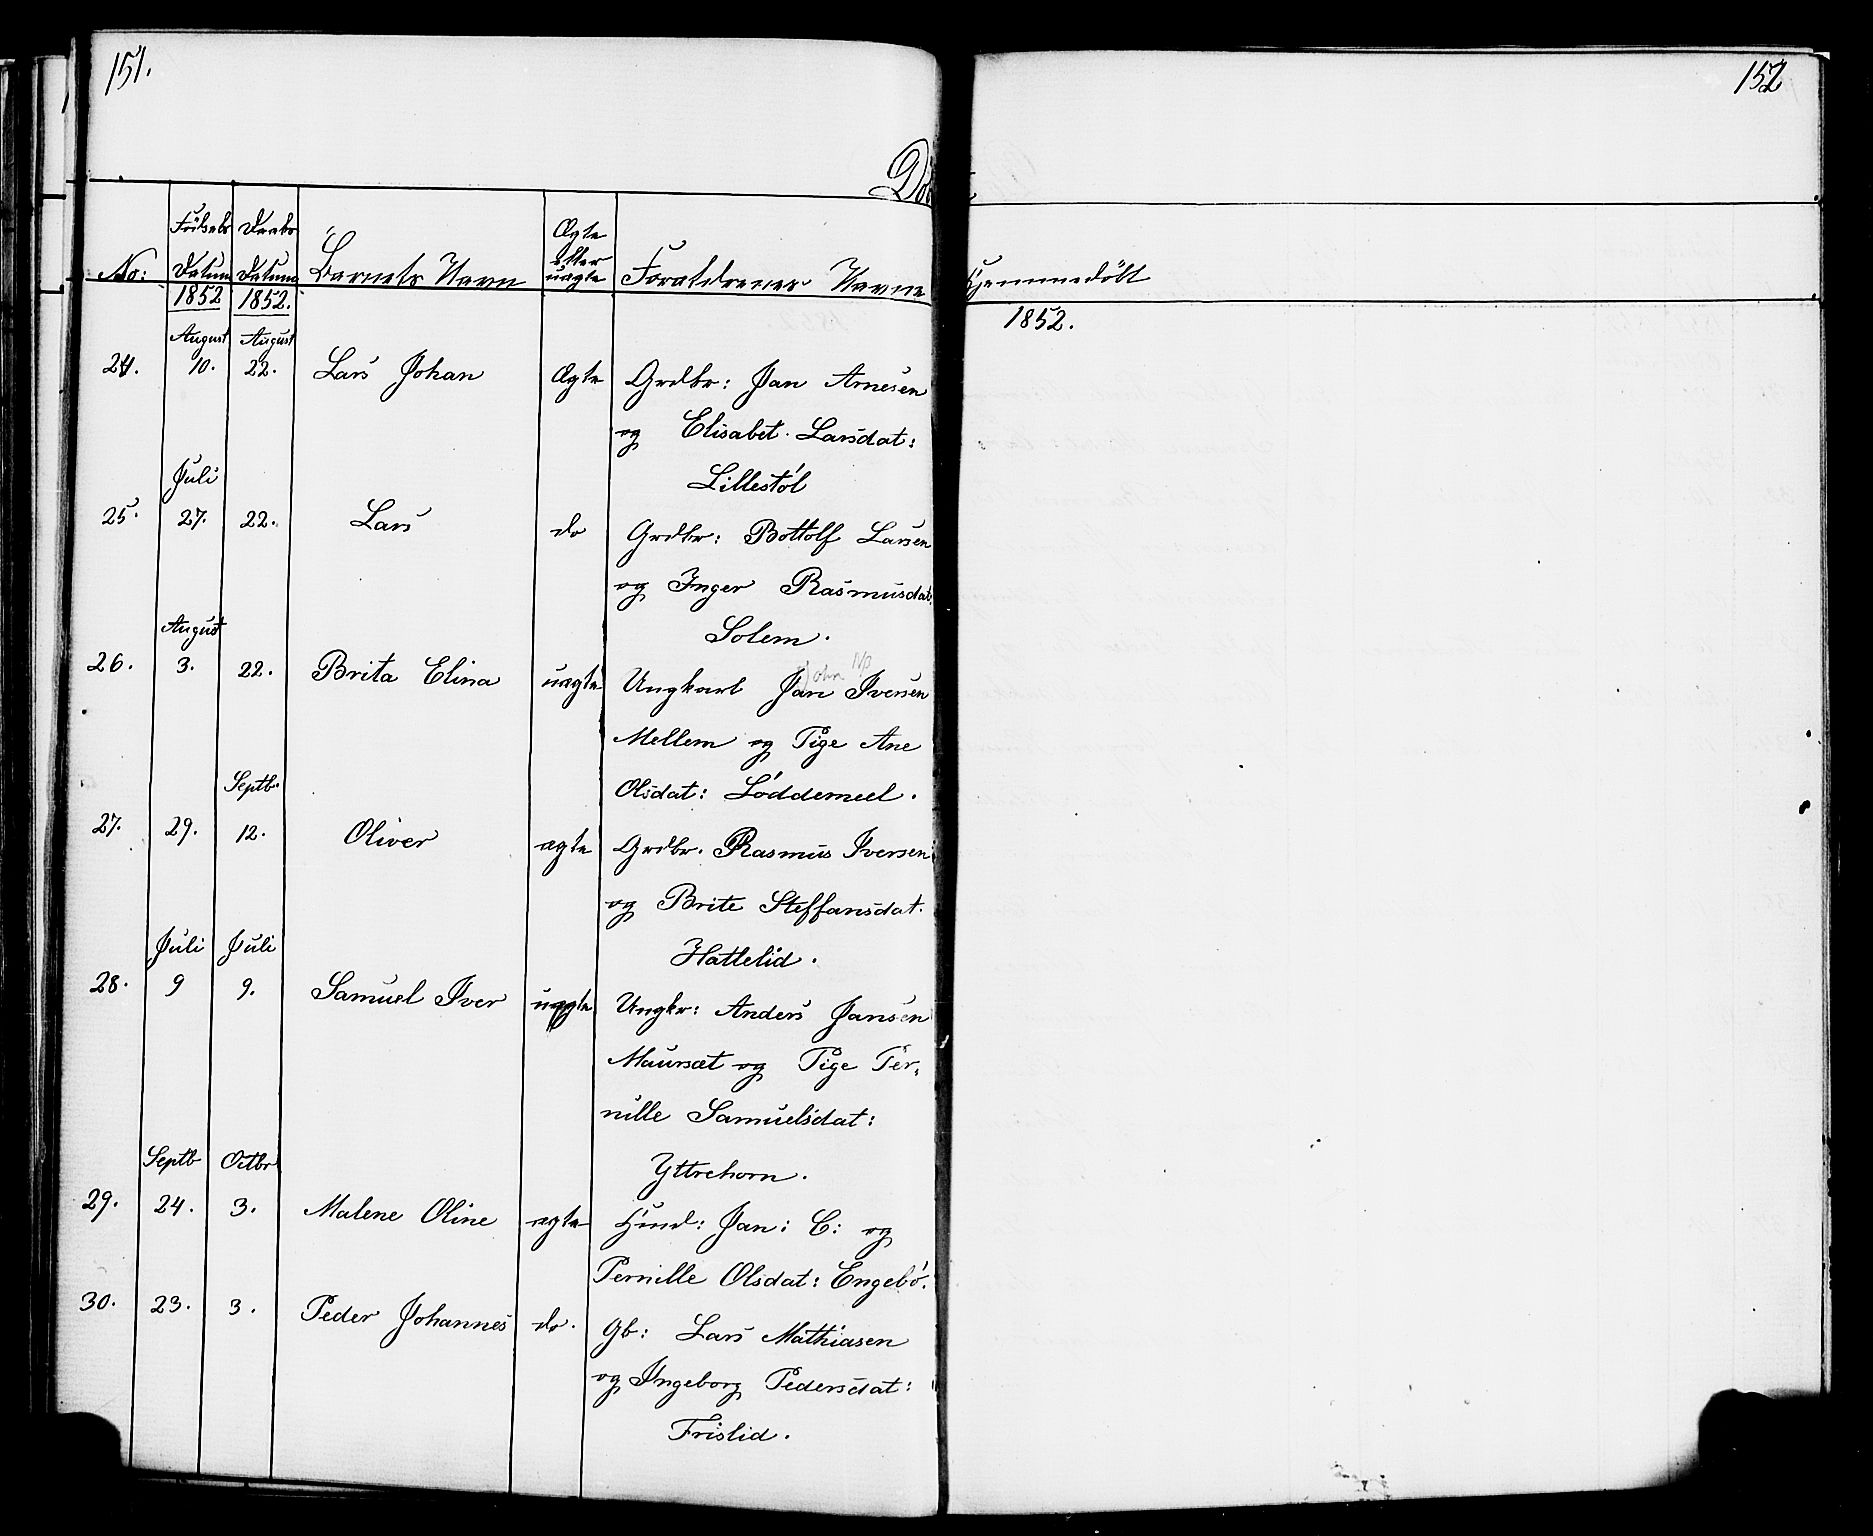 151.
152
Døb
No:
Födsels Datum
Daabs Datum
Barnets Navn
Ægte eller uægte
Forældrenes Navne
Hjemmedöbt
1852
1852.
1852.
August
August
24. 10. 22. Lars Johan Ægte Grdbr: Jan Arnesen
og Elisabet Larsdat:
Lillestöl
Juli
25. 27. 22. Lars do Grdbr: Bottolf Larsen
og Inger Rasmusdat.
Solem.
August
John NB
26. 3. 22. Brita Elina uægte Ungkarl Jan Iversen
Mellem og Pige Ane
Olsdat: Löddemeel.
Septb.
27. 29. 12. Oliver ægte Grdbr. Rasmus Iversen
og Brite Steffansdat.
Hattelid.
Juli Juli
28. 9 9. Samuel Iver uægte Ungkr: Anders Jansen
Maursæt og Pige Per,
nille Samuelsdat:
Yttrehorn.
Septb Octbr
29. 24. 3. Malene Oline ægte Huusd: Jan: C: og
Pernille Olsdat: Engebö.
30. 23. 3. Peder Johannes do. Gb: Lars Mathiasen
og Ingeborg Pedersdat:
Frislid.